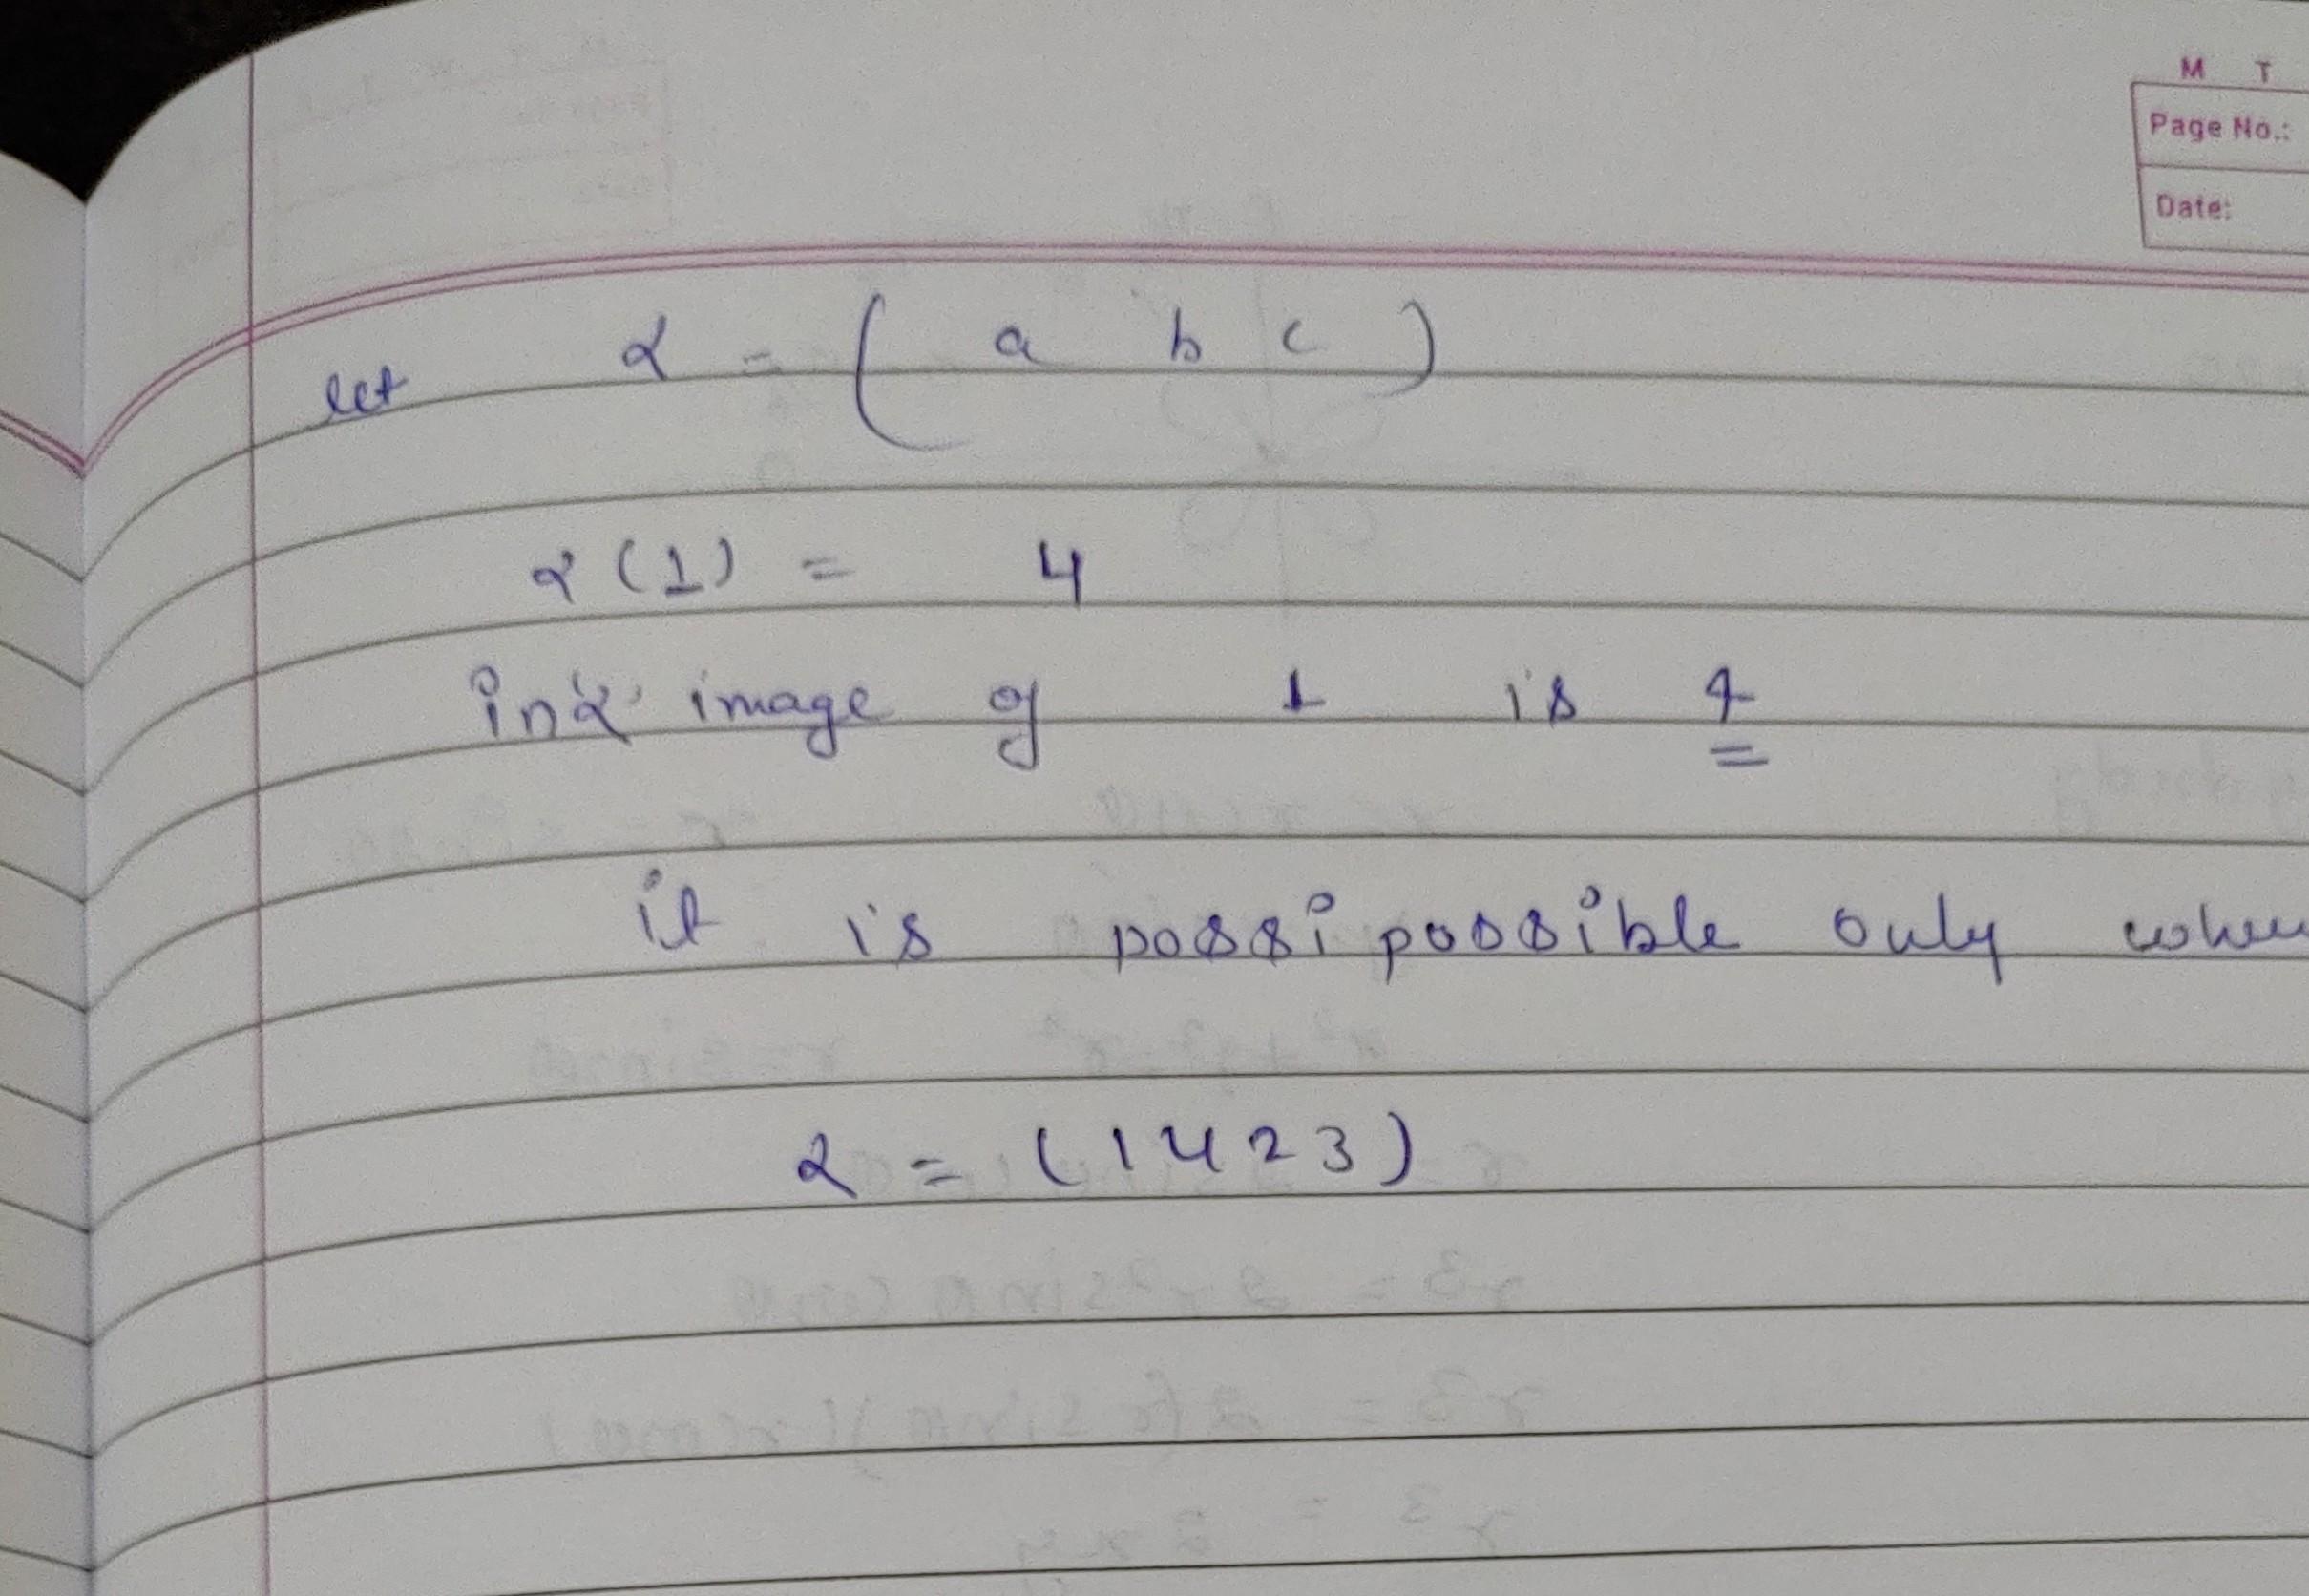 M T
Page No.:
Date:
let α = ( a b c )
α (1) = 4
in 'α' image of 1 is 4
it is possi possible only when
α = (1 4 2 3)